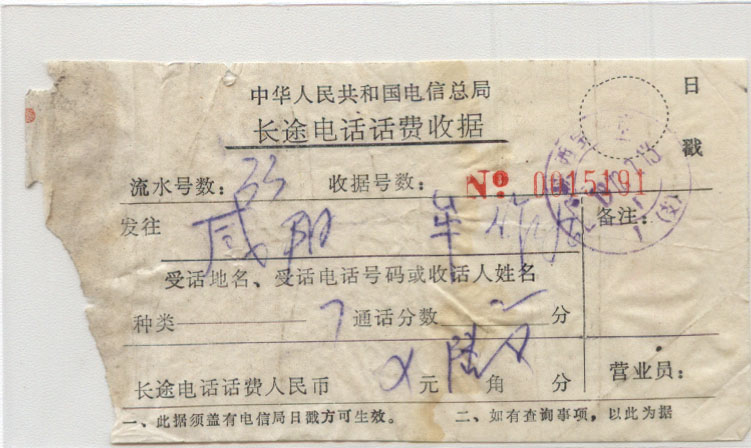 中华人民共和国电信总局
日
长途电话话费收据
戳
流水号数：33 收据号数： № 0015191
发往 咸阳 备注：
受话地名、受话电话号码或收话人姓名
种类 通话分数 分
长途电话话费人民币 元 角 分 营业员：
一、此据须盖有电信局日戳方可生效。 二、如有查询事项，以此为据